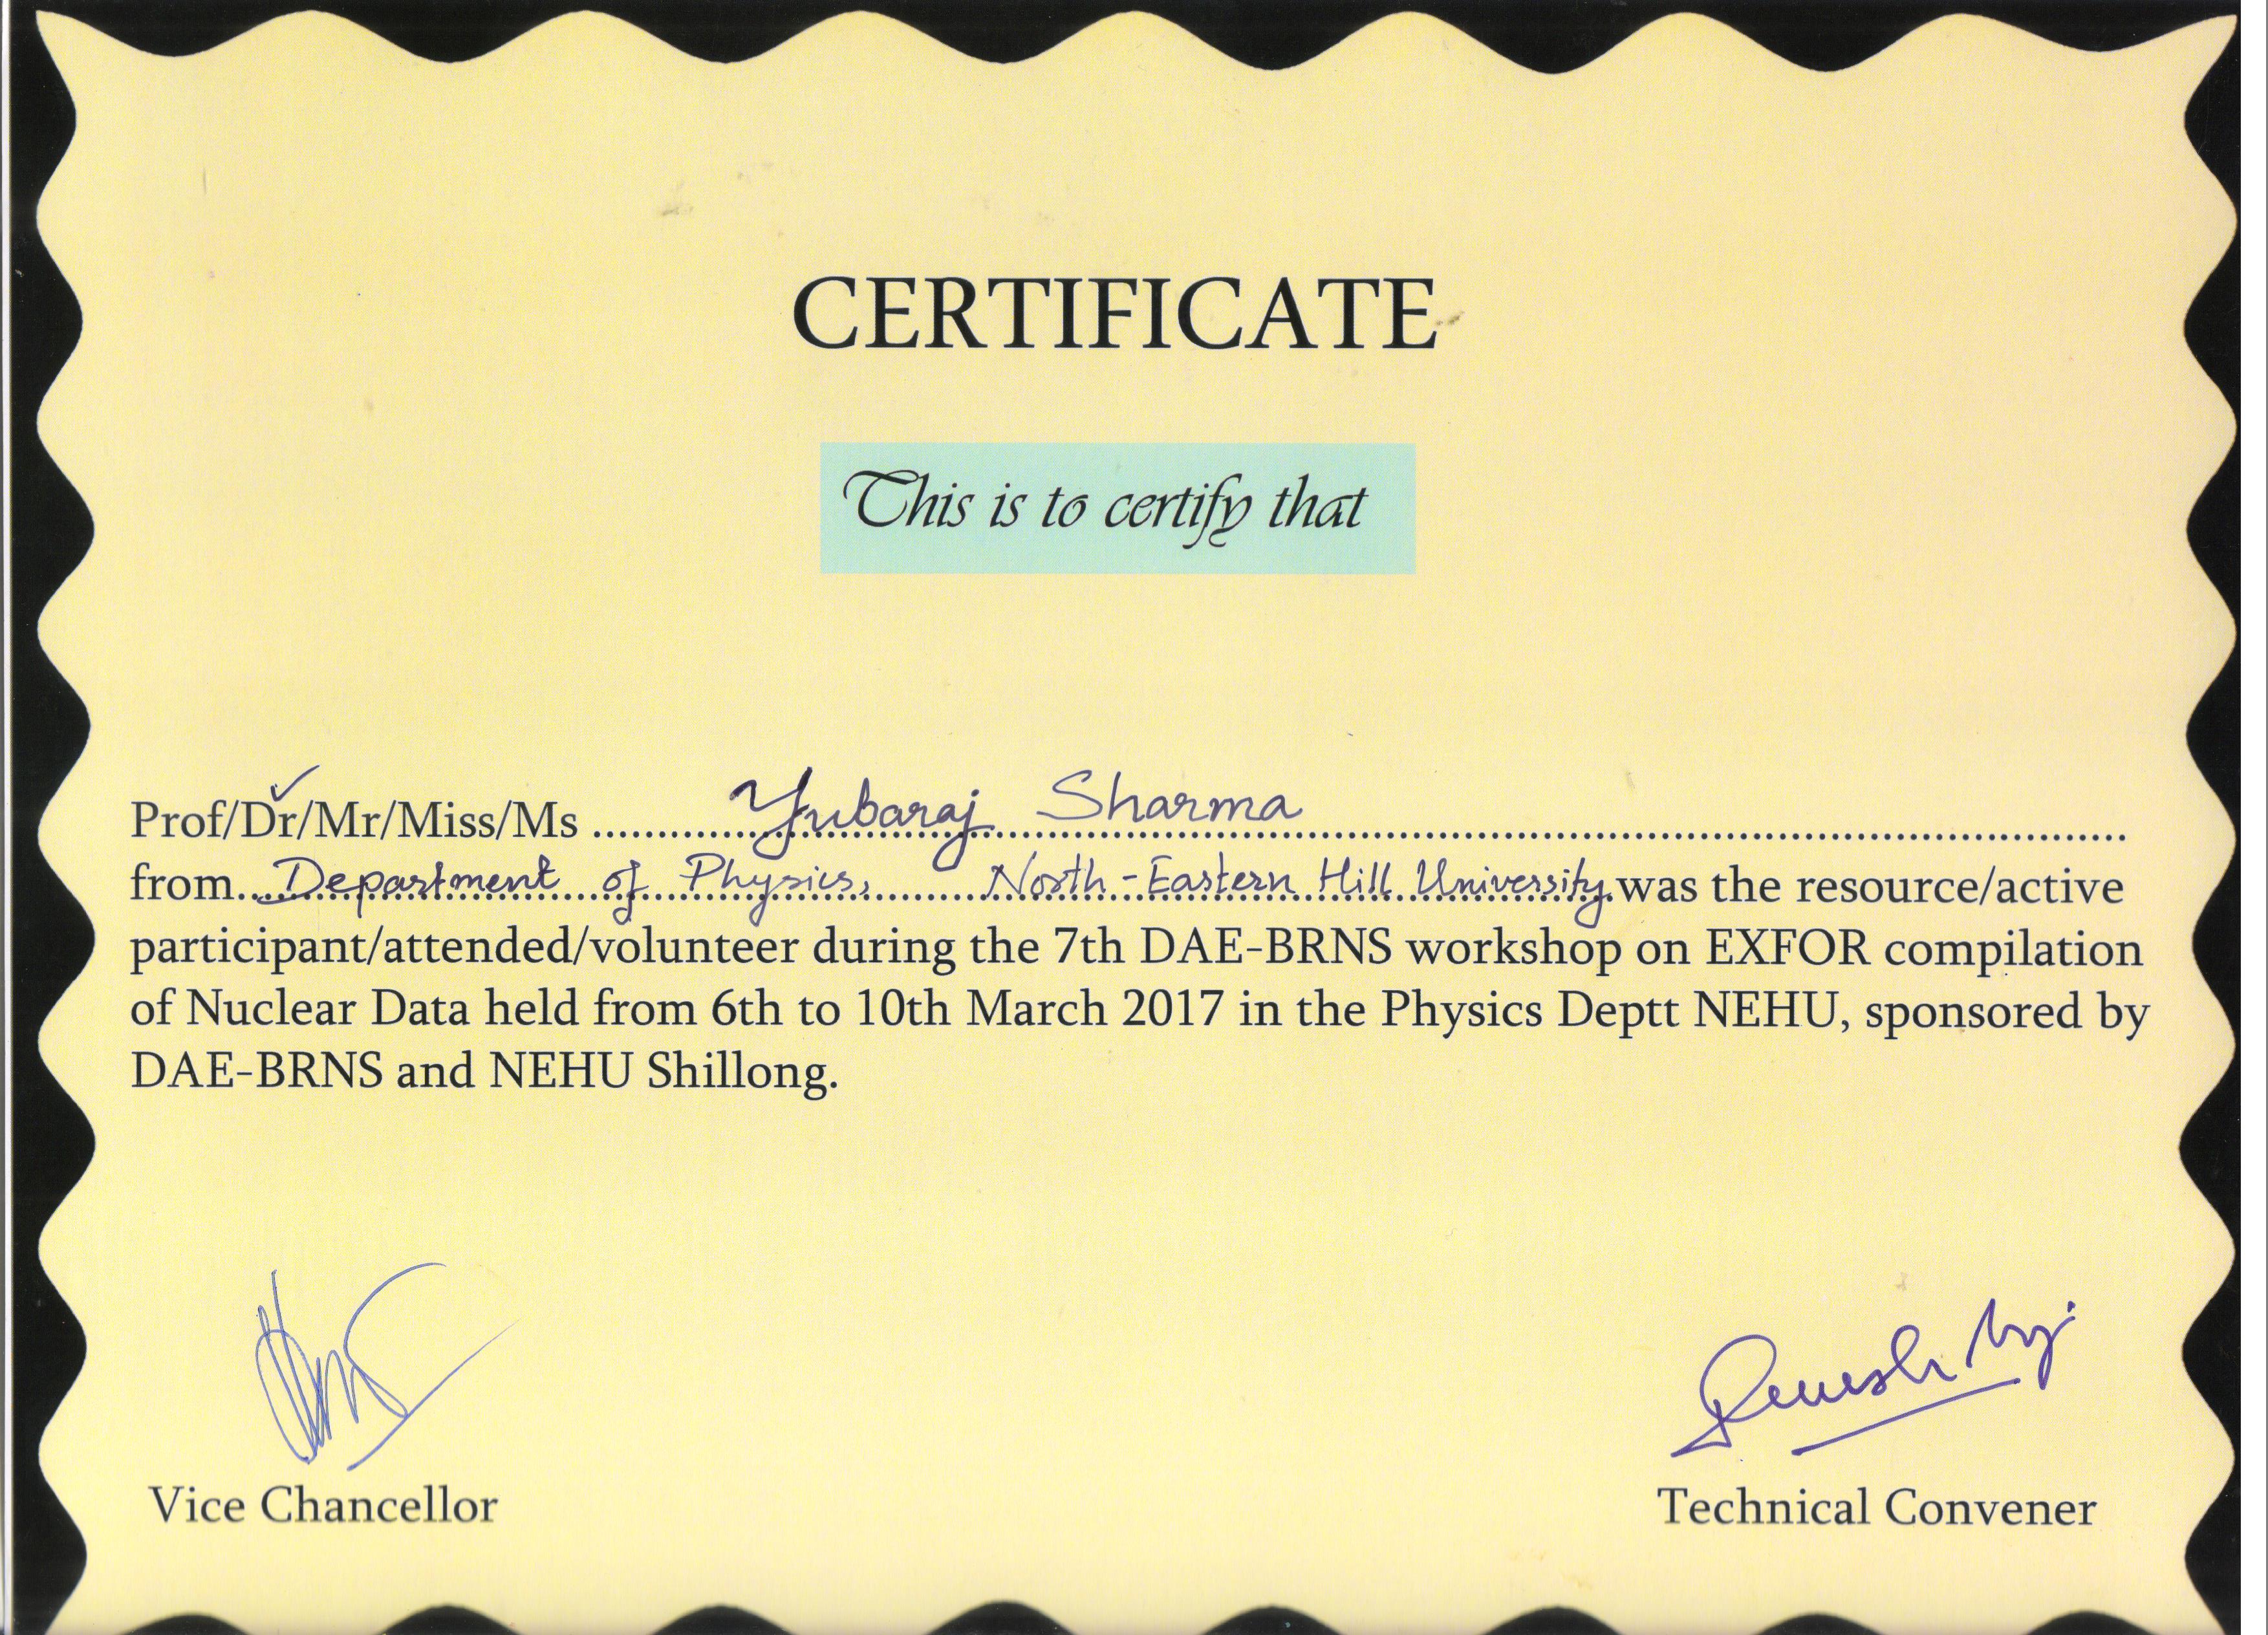 CERTIFICATE
This is to certify that
Prof/Dr/Mr/Miss/Ms ........Yubaraj Sharma........
from...Department of Physics, North-Eastern Hill University.was the resource/active
participant/attended/volunteer during the 7th DAE-BRNS workshop on EXFOR compilation
of Nuclear Data held from 6th to 10th March 2017 in the Physics Deptt NEHU, sponsored by
DAE-BRNS and NEHU Shillong.
Vice Chancellor
Technical Convener